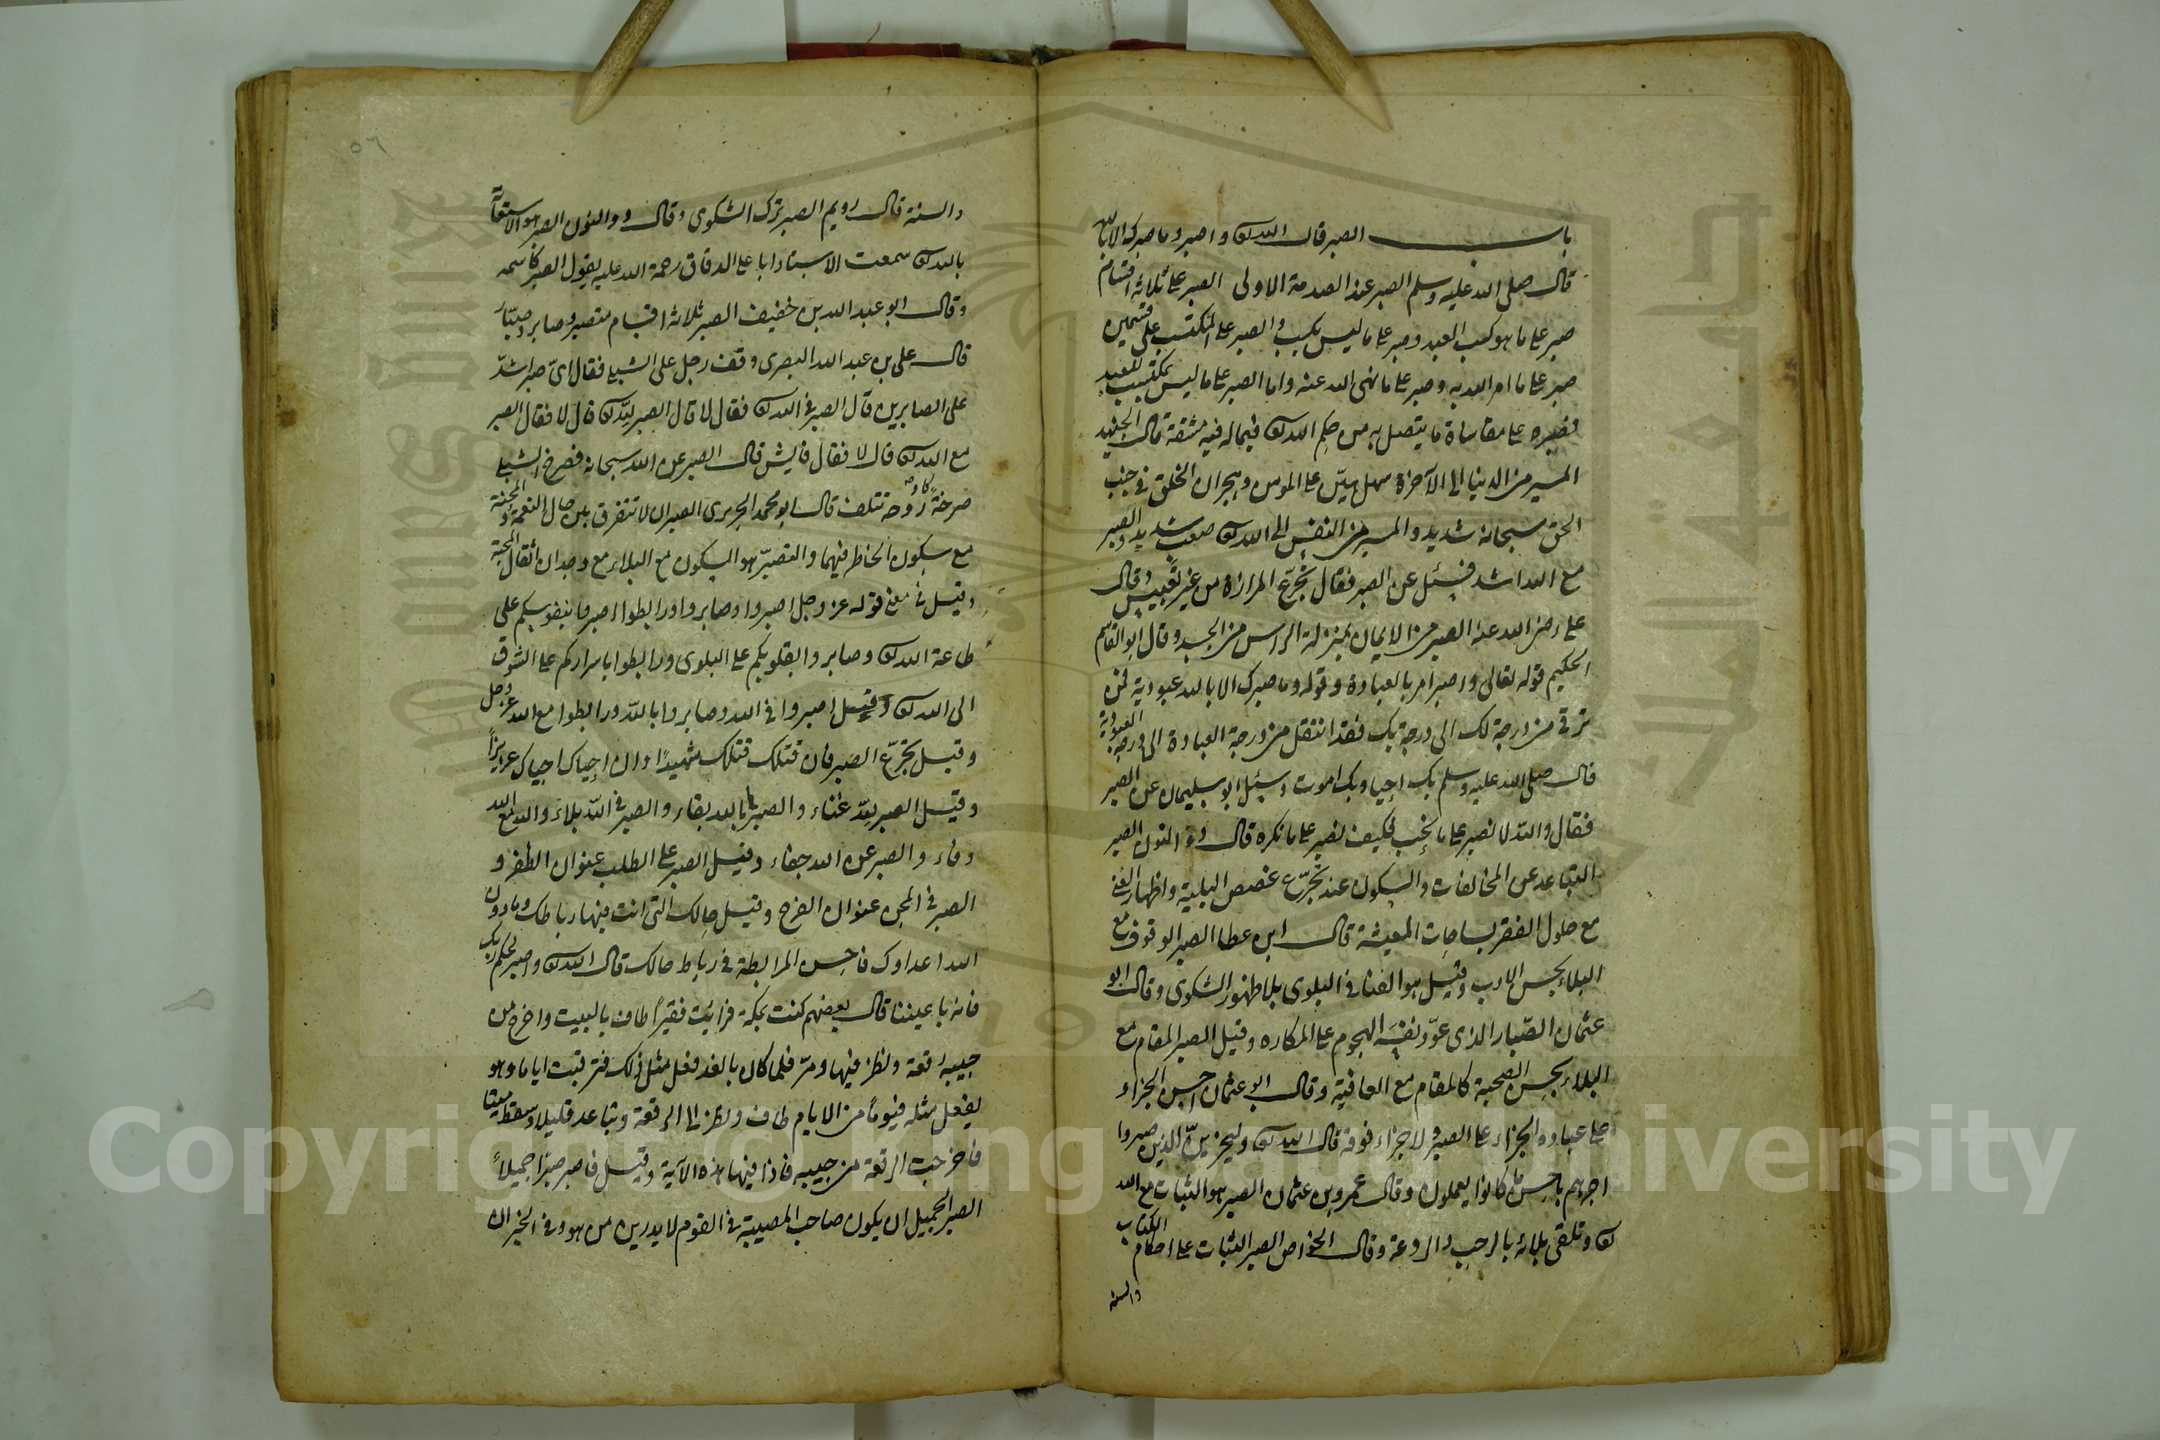 باب الصبر قال الله تعالى واصبر وما صبرك الا بالله
قال صلى الله عليه وسلم الصبر عند الصدمة الاولى الصبر على ثلاثة اقسام
صبر على ما هو كسب العبد وصبر على ما ليس بكسب والصبر على المكتسب على قسمين
صبر على ما امر الله به وصبر على ما نهى الله عنه واما الصبر على ما ليس بمكتسب للعبد
فصبره على مقاساة ما يتصل به من حكم الله تعالى فيما له فيه مشقة قال الجنيد
المسير من الدنيا الى الآخرة سهل هيّن على المومن وهجران الخلق في جنب
الحق سبحانه شديد والمسير من النفس الى الله تعالى صعب شديد والصبر
مع الله اشد فسئل عن الصبر فقال تجرّع المرارة من غير تعبيس وقال
على رضى الله عنه الصبر من الايمان بمنزلة الراس من الجسد وقال ابو القاسم
الحكيم قوله تعالى واصبر امر بالعبادة وقوله وما صبرك الا بالله عبودية فمن
ترقى من درجة لك الى درجة بك فقد انتقل من درجة العبادة الى درجة العبودية
قال صلى الله عليه وسلم بك احيا وبك اموت وسئل ابو سليمان عن الصبر
فقال والله لا نصبر على ما نحب فكيف نصبر على ما نكره قال ذو النون الصبر
التباعد عن المخالفات والسكون عند تجرّع غصص البلية واظهار الغنى
مع حلول الفقر بساحات المعيشة قال ابن عطا الصبر الوقوف مع
البلاء بحسن الادب وقيل هو الفنا في البلوى بلا ظهور الشكوى وقال ابو
عثمان الصّبار الذى عوّد نفسه الهجوم على المكاره وقيل الصبر المقام مع
البلاء بحسن الصحبة كالمقام مع العافية وقال ابو عثمان احسن الجزاء
على عبادة الجزاء على الصبر لا جزاء فوقه قال الله تعالى وليجزينّ الذين صبروا
اجرهم باحسن ما كانوا يعملون وقال عمرو بن عثمان الصبر هو الثبات مع الله
تعالى وتلقى بلائه بالرحب والدعة وقال الخواص الصبر الثبات على احكام الكتاب
والسنة
٥٦
والسنة قال رويم الصبر ترك الشكوى وقال ذو النون الصبر هو الاستعانة
بالله تعالى سمعت الاستاد ابا على الدقاق رحمة الله عليه يقول الصبر كاسمه
وقال ابو عبد الله بن خفيف الصبر ثلاثة اقسام متصبر وصابر وصبّار
قال على بن عبد الله البصرى وقف رجل على الشبلى فقال اىّ صبر اشدّ
على الصابرين قال الصبر في الله تعالى فقال لا قال الصبر لله تعالى قال لا فقال الصبر
مع الله تعالى قال لا فقال فايش قال الصبر عن الله سبحانه فصرخ الشبلى
صرخة كادت روحه تتلف قال ابو محمد الجريرى الصبر ان لا تتفرق بين حال النعمة والمحنة
مع سكون الخاطر فيهما والتصبّر هو السكون مع البلاء مع وجدان اثقال المحنة
وقيل في معنى قوله عز وجل اصبروا وصابروا ورابطوا اصبروا بنفوسكم على
طاعة الله تعالى وصابروا بقلوبكم على البلوى ورابطوا باسراركم على الشوق
الى الله تعالى وقيل اصبروا في الله وصابروا بالله ورابطوا مع الله عز وجل
وقيل تجرّع الصبر فان قتلك قتلك شهيدًا وان احياك احياك عزيزًا
وقيل الصبر لله عناء والصبر بالله بقاء والصبر في الله بلاء والصبر مع الله
وفاء والصبر عن الله جفاء وقيل الصبر على الطلب عنوان الظفر و
الصبر في المحن عنوان الفرج وقيل حالك التى انت فيها رباطك وما دون
الله اعداوك فاحسن المرابطة في رباط حالك قال الله تعالى واصبر لحكم ربك
فانك باعيننا قال بعضهم كنت بمكة فرايت فقيرًا طاف بالبيت واخرج من
جيبه رقعة ونظر فيها ومرّ فلما كان بالغد فعل مثل ذلك فترقبت اياما وهو
يفعل مثله فيومًا من الايام طاف ونظر الى الرقعة وتباعد قليلا وسقط ميتا
فاخرجت الرقعة من جيبه فاذا فيها هذه الآية وقيل فاصبر صبرًا جميلاً
الصبر الجميل ان يكون صاحب المصيبة في القوم لا يدرين من هو وفي الخبر ان
Copyright © King Saud University